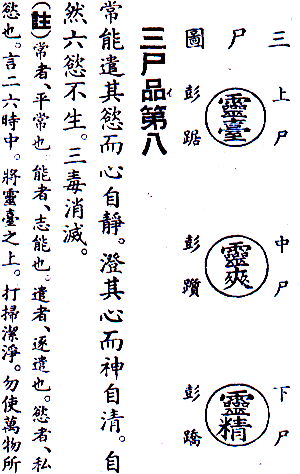 三尸圖
上尸
靈臺
彭踞
中尸
靈夾
彭躓
下尸
靈精
彭蹻
三尸品第八
常能遣其慾而心自靜。澄其心而神自清。自
然六慾不生。三毒消滅。
(註)常者、平常也。能者、志能也。遣者、逐遣也。慾者、私
慾也。言二六時中。將靈臺之上。打掃潔淨。勿使萬物所